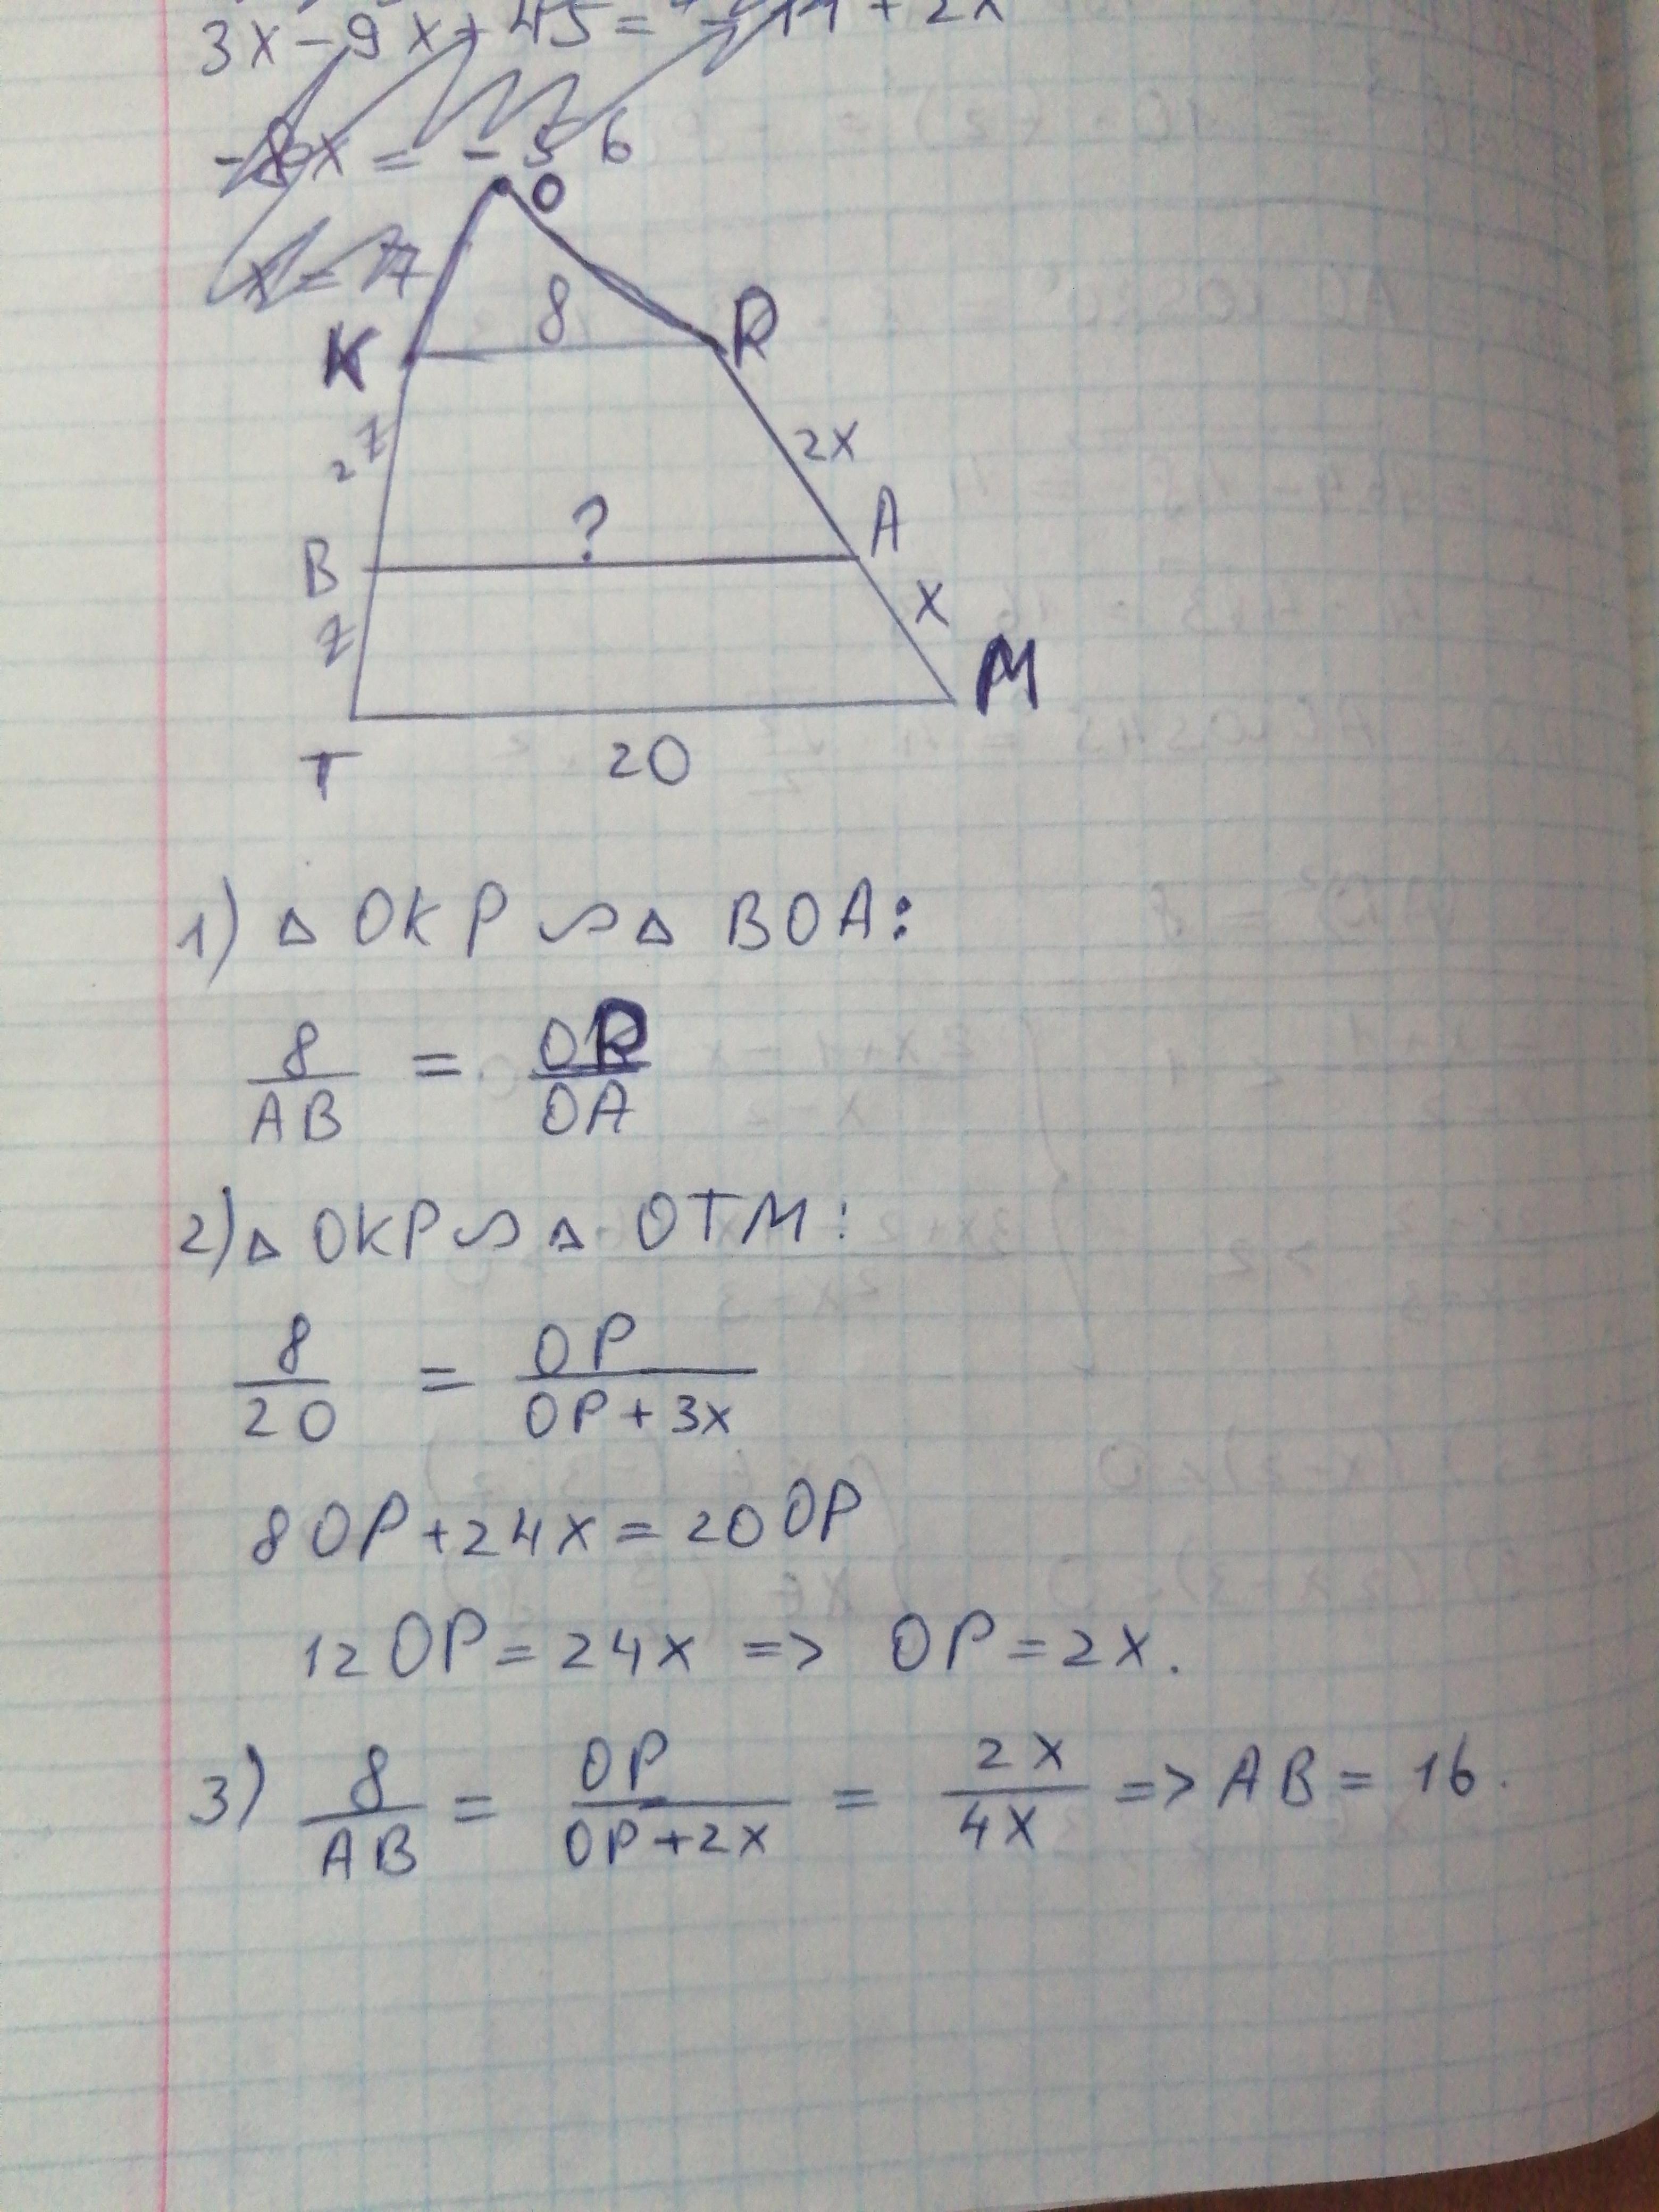 3x - 9x + 45 = - 11 + 2x
-8x = -56
x = 7
O
8
K
P
2z
2x
?
A
B
x
z
M
T
20
1) Δ OKP ∽ Δ BOA:
8/AB = OP/OA
2) Δ OKP ∽ Δ OTM:
8/20 = OP/(OP + 3x)
8OP + 24x = 20OP
12OP = 24x => OP = 2x.
3) 8/AB = OP/(OP + 2x) = 2x/4x => AB = 16.